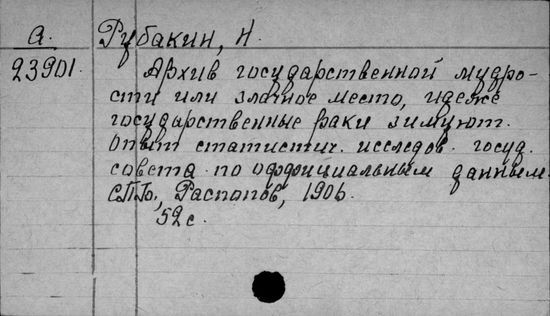 а. Рубакин, Н.
23901. Архив государственной мудро-
сти или злачное место, идеже
государственные раки зимуют.
Опыт статистич. исследов. госуд.
совета по оффициальным данным.
СПб., Распопов, 1906.
52 с.